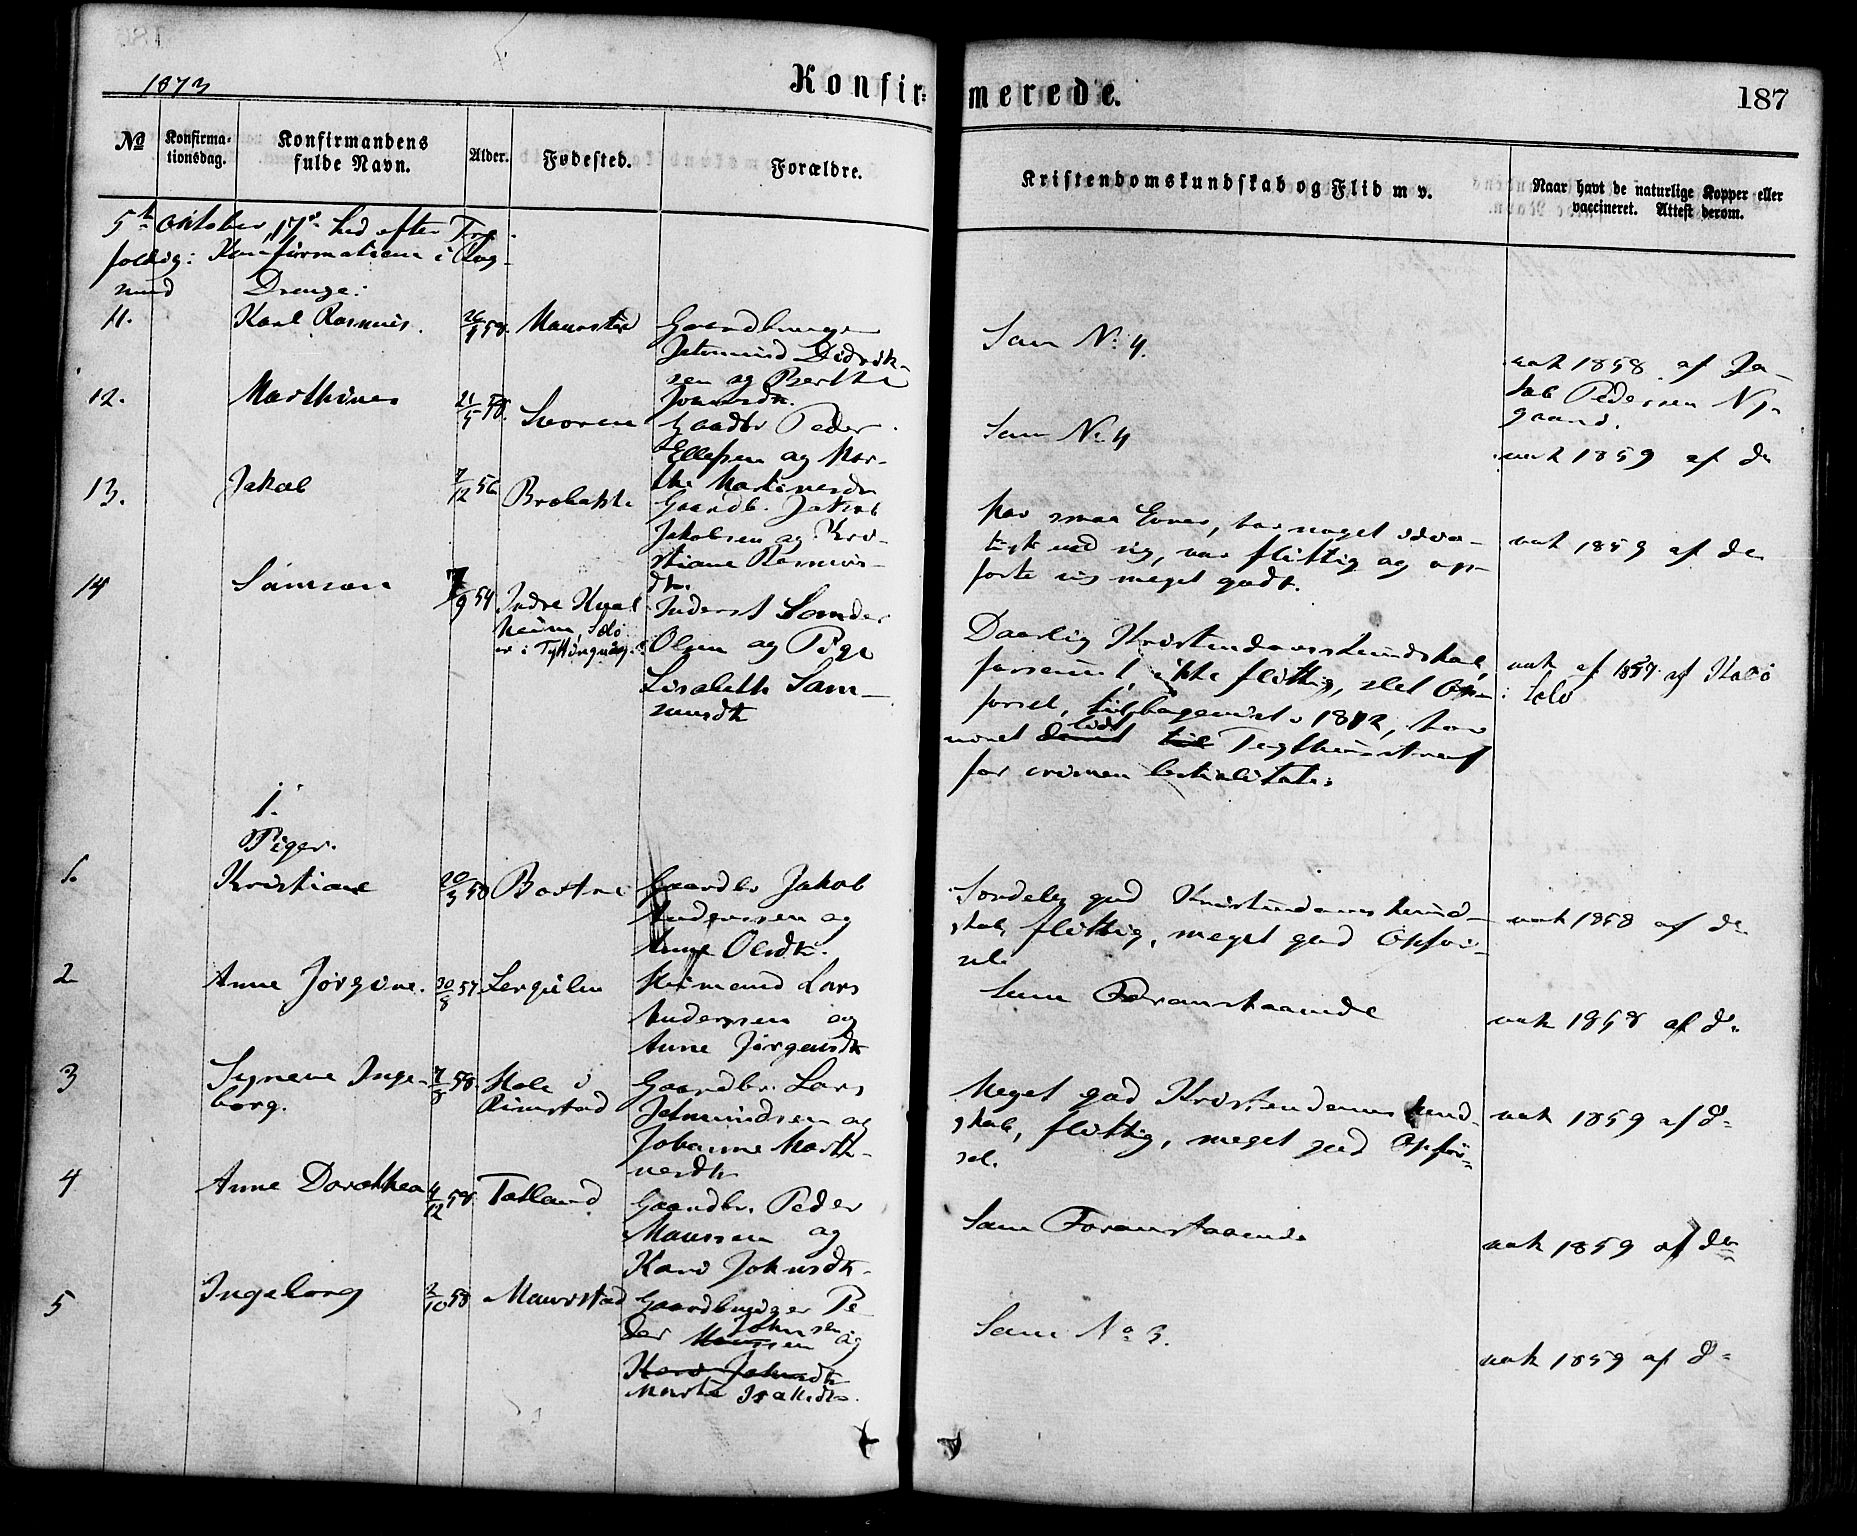 1873
Konfir-
merede.
187
No
Konfirma-
tionsdag.
Konfirmandens
fulde Navn.
Alder.
Fødested.
Forældre.
Kristendomskundskab og Flid m v.
Naar havt de naturlige Kopper eller
vaccineret. Attest derom.
5te Oktober, 17de Sød efter Tre-
foldig: Konfirmation i
Drenge:
11.
Karl Rasmus.
26/1 58.
Maurstad
Gaardbruger
Jetmund Didrik-
sen og Berthe
Som No. 4.
vak 1858 af Ja-
kob Pedersen Ny-
gaard.
12.
Marthines
21/5 58.
Gaardbr Peder
og Mar-
the Martinesdr
Som No 4
vak 1859 af do
13.
Jakob
7/12 56
Gaardb. Jakob
Jakobsen og Kri-
stiane Rasmus-
dtr.
har smaa Evner, har noget
ved sig, var flittig og op-
førte sig meget godt.
vak 1859 af do
14
Samson
7/9 54
Indre
Inderst Sander
Olsen og Pige
Lisabeth Sam-
sonsdtr
Daarlig Kristendomskundskab,
forsømt, ikke flittig, slet Op-
førsel, tilbagevist i 1872, har
været lidt Tugthusstraf
for crimen bestialitatis
vak af 1857 af
i Selø
1.
Piger.
1.
Kristiane
20/3 58
Gaardbr Jakob
Anderssen og
Anne Olsdtr.
Særdeles god Kristendomskund-
skab, flittig, meget god Opfør-
sel
vak 1858 af do
2
Anne Jørgine.
30/8 57
Husmand Lars
Anderssen og
Anne Jørgensdtr
Som Foranstaaende
vak 1858 af do
3
Synneve Inge-
borg.
7/8 58
Hole i
Rimstad
Gaardbr. Lars
Jetmundsen og
Johanne Marti-
nesdtr
Meget god Kristendomskund-
skab, flittig, meget god Opfør-
sel.
vak 1859 af do
4
Anne Dorothea
4/12 58
Totland
Gaardbr. Peder
Monssen og
Kari Johnsdtr.
Som Foranstaaende
vak 1859 af do
5
Ingeborg
2/10 58
Maurstad
Gaardbruger Pe-
der Monssen Johnsen og
Kari Johnsdtr
Marta
Som No 3.
vak 1859 af do